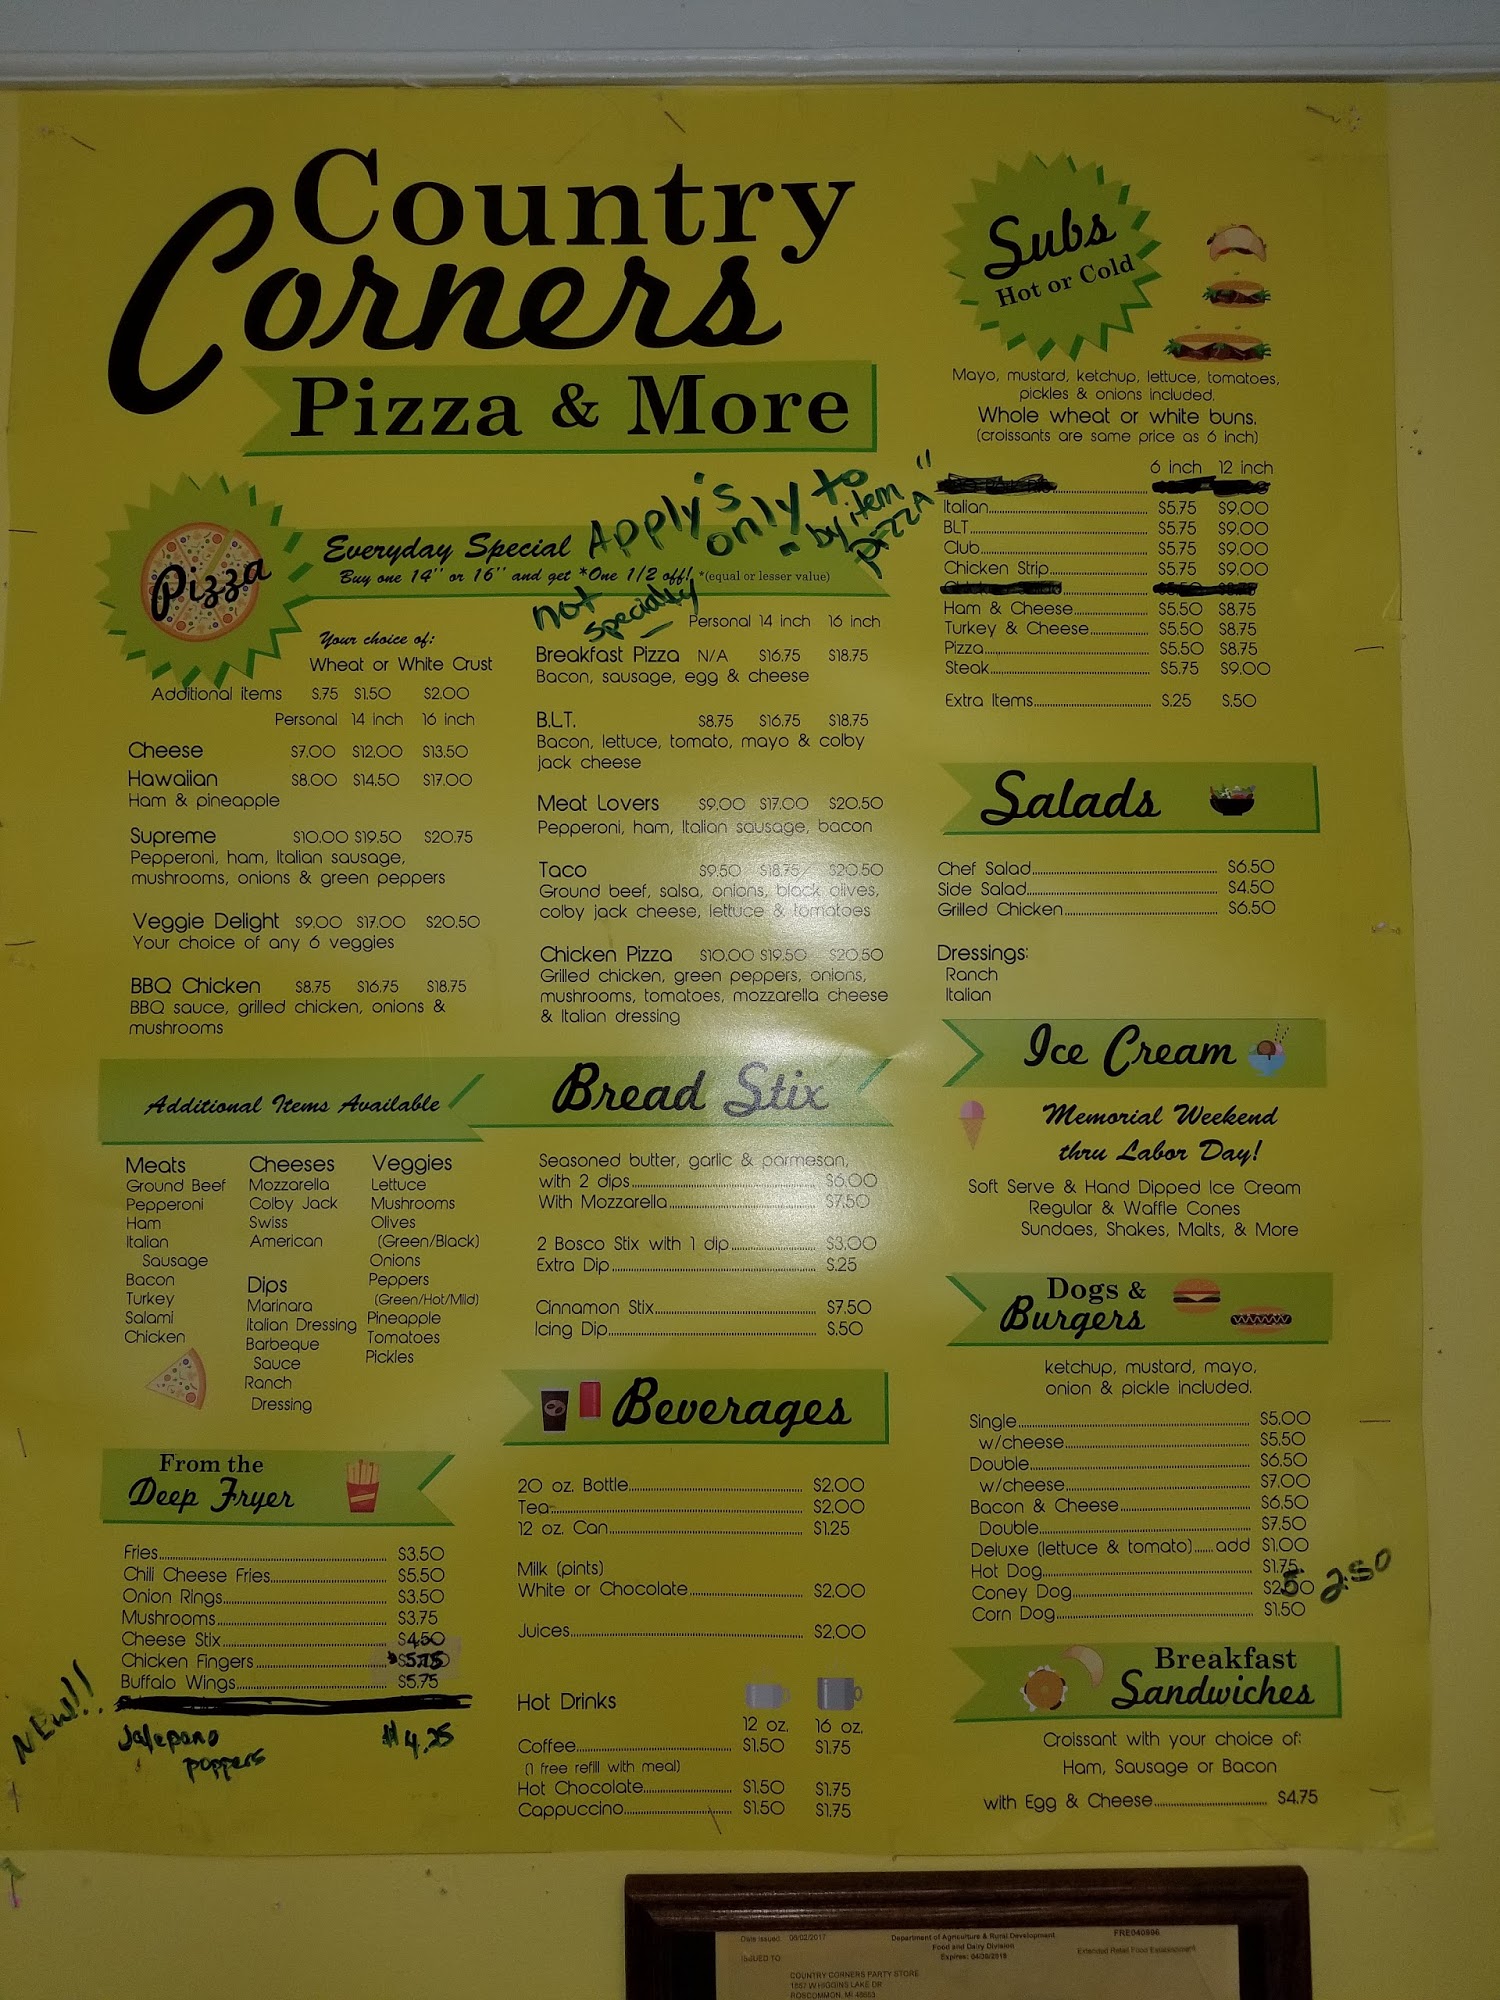 Country
Corners
Pizza & More
Pizza
Everyday Special Apply's only to "by item pizza"
Buy one 14" or 16" and get *One 1/2 off! *(equal or lesser value)
not specialty
Your choice of:
Wheat or White Crust
Additional items $.75 $1.50 $2.00
Personal 14 inch 16 inch
Cheese $7.00 $12.00 $13.50
Hawaiian $8.00 $14.50 $17.00
Ham & pineapple
Supreme $10.00 $19.50 $20.75
Pepperoni, ham, Italian sausage,
mushrooms, onions & green peppers
Veggie Delight $9.00 $17.00 $20.50
Your choice of any 6 veggies
BBQ Chicken $8.75 $16.75 $18.75
BBQ sauce, grilled chicken, onions &
mushrooms
Personal 14 inch 16 inch
Breakfast Pizza N/A $16.75 $18.75
Bacon, sausage, egg & cheese
B.L.T. $8.75 $16.75 $18.75
Bacon, lettuce, tomato, mayo & colby
jack cheese
Meat Lovers $9.00 $17.00 $20.50
Pepperoni, ham, Italian sausage, bacon
Taco $9.50 $18.75 $20.50
Ground beef, salsa, onions, black olives,
colby jack cheese, lettuce & tomatoes
Chicken Pizza $10.00 $19.50 $20.50
Grilled chicken, green peppers, onions,
mushrooms, tomatoes, mozzarella cheese
& Italian dressing
Additional Items Available
Meats
Ground Beef
Pepperoni
Ham
Italian
Sausage
Bacon
Turkey
Salami
Chicken
Cheeses
Mozzarella
Colby Jack
Swiss
American
Dips
Marinara
Italian Dressing
Barbeque
Sauce
Ranch
Dressing
Veggies
Lettuce
Mushrooms
Olives
(Green/Black)
Onions
Peppers
(Green/Hot/Mild)
Pineapple
Tomatoes
Pickles
From the
Deep Fryer
Fries $3.50
Chili Cheese Fries $5.50
Onion Rings $3.50
Mushrooms $3.75
Cheese Stix $4.50
Chicken Fingers $5.75
Buffalo Wings $5.75
NEW!! Jalepano poppers $4.25
Bread Stix
Seasoned butter, garlic & parmesan,
with 2 dips $6.00
With Mozzarella $7.50
2 Bosco Stix with 1 dip $3.00
Extra Dip $.25
Cinnamon Stix $7.50
Icing Dip $.50
Beverages
20 oz. Bottle $2.00
Tea $2.00
12 oz. Can $1.25
Milk (pints)
White or Chocolate $2.00
Juices $2.00
Hot Drinks
12 oz. 16 oz.
Coffee $1.50 $1.75
(1 free refill with meal)
Hot Chocolate $1.50 $1.75
Cappuccino $1.50 $1.75
Subs
Hot or Cold
Mayo, mustard, ketchup, lettuce, tomatoes,
pickles & onions included.
Whole wheat or white buns.
(croissants are same price as 6 inch)
6 inch 12 inch
Italian $5.75 $9.00
BLT $5.75 $9.00
Club $5.75 $9.00
Chicken Strip $5.75 $9.00
Ham & Cheese $5.50 $8.75
Turkey & Cheese $5.50 $8.75
Pizza $5.50 $8.75
Steak $5.75 $9.00
Extra Items $.25 $.50
Salads
Chef Salad $6.50
Side Salad $4.50
Grilled Chicken $6.50
Dressings:
Ranch
Italian
Ice Cream
Memorial Weekend
thru Labor Day!
Soft Serve & Hand Dipped Ice Cream
Regular & Waffle Cones
Sundaes, Shakes, Malts, & More
Dogs &
Burgers
ketchup, mustard, mayo,
onion & pickle included.
Single $5.00
w/cheese $5.50
Double $6.50
w/cheese $7.00
Bacon & Cheese $6.50
Double $7.50
Deluxe (lettuce & tomato) add $1.00
Hot Dog $1.75
Coney Dog $2.50 2.50
Corn Dog $1.50
Breakfast
Sandwiches
Croissant with your choice of:
Ham, Sausage or Bacon
with Egg & Cheese $4.75
Date Issued 06/02/2017
Department of Agriculture & Rural Development
FRE040896
Food and Dairy Division
Expires: 04/30/2018
Extended Retail Food Establishment
ISSUED TO
COUNTRY CORNERS PARTY STORE
1857 W HIGGINS LAKE DR
ROSCOMMON, MI 48653